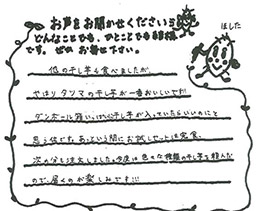 お声をお聞かせください!!
どんなことでも、ひとことでも結構
です。ぜひ お寄せ下さい。
ほした
他の干し芋も食べましたが、
やはり タツマの干し芋が一番おいしいです!!
ダンボール箱いっぱい干し芋が入っていたらいいのにと
思う位です。あっという間にお試しセットは完食、
次の分も注文しました。今度は色々な種類の干し芋を頼んだ
ので、届くのが楽しみです!!!